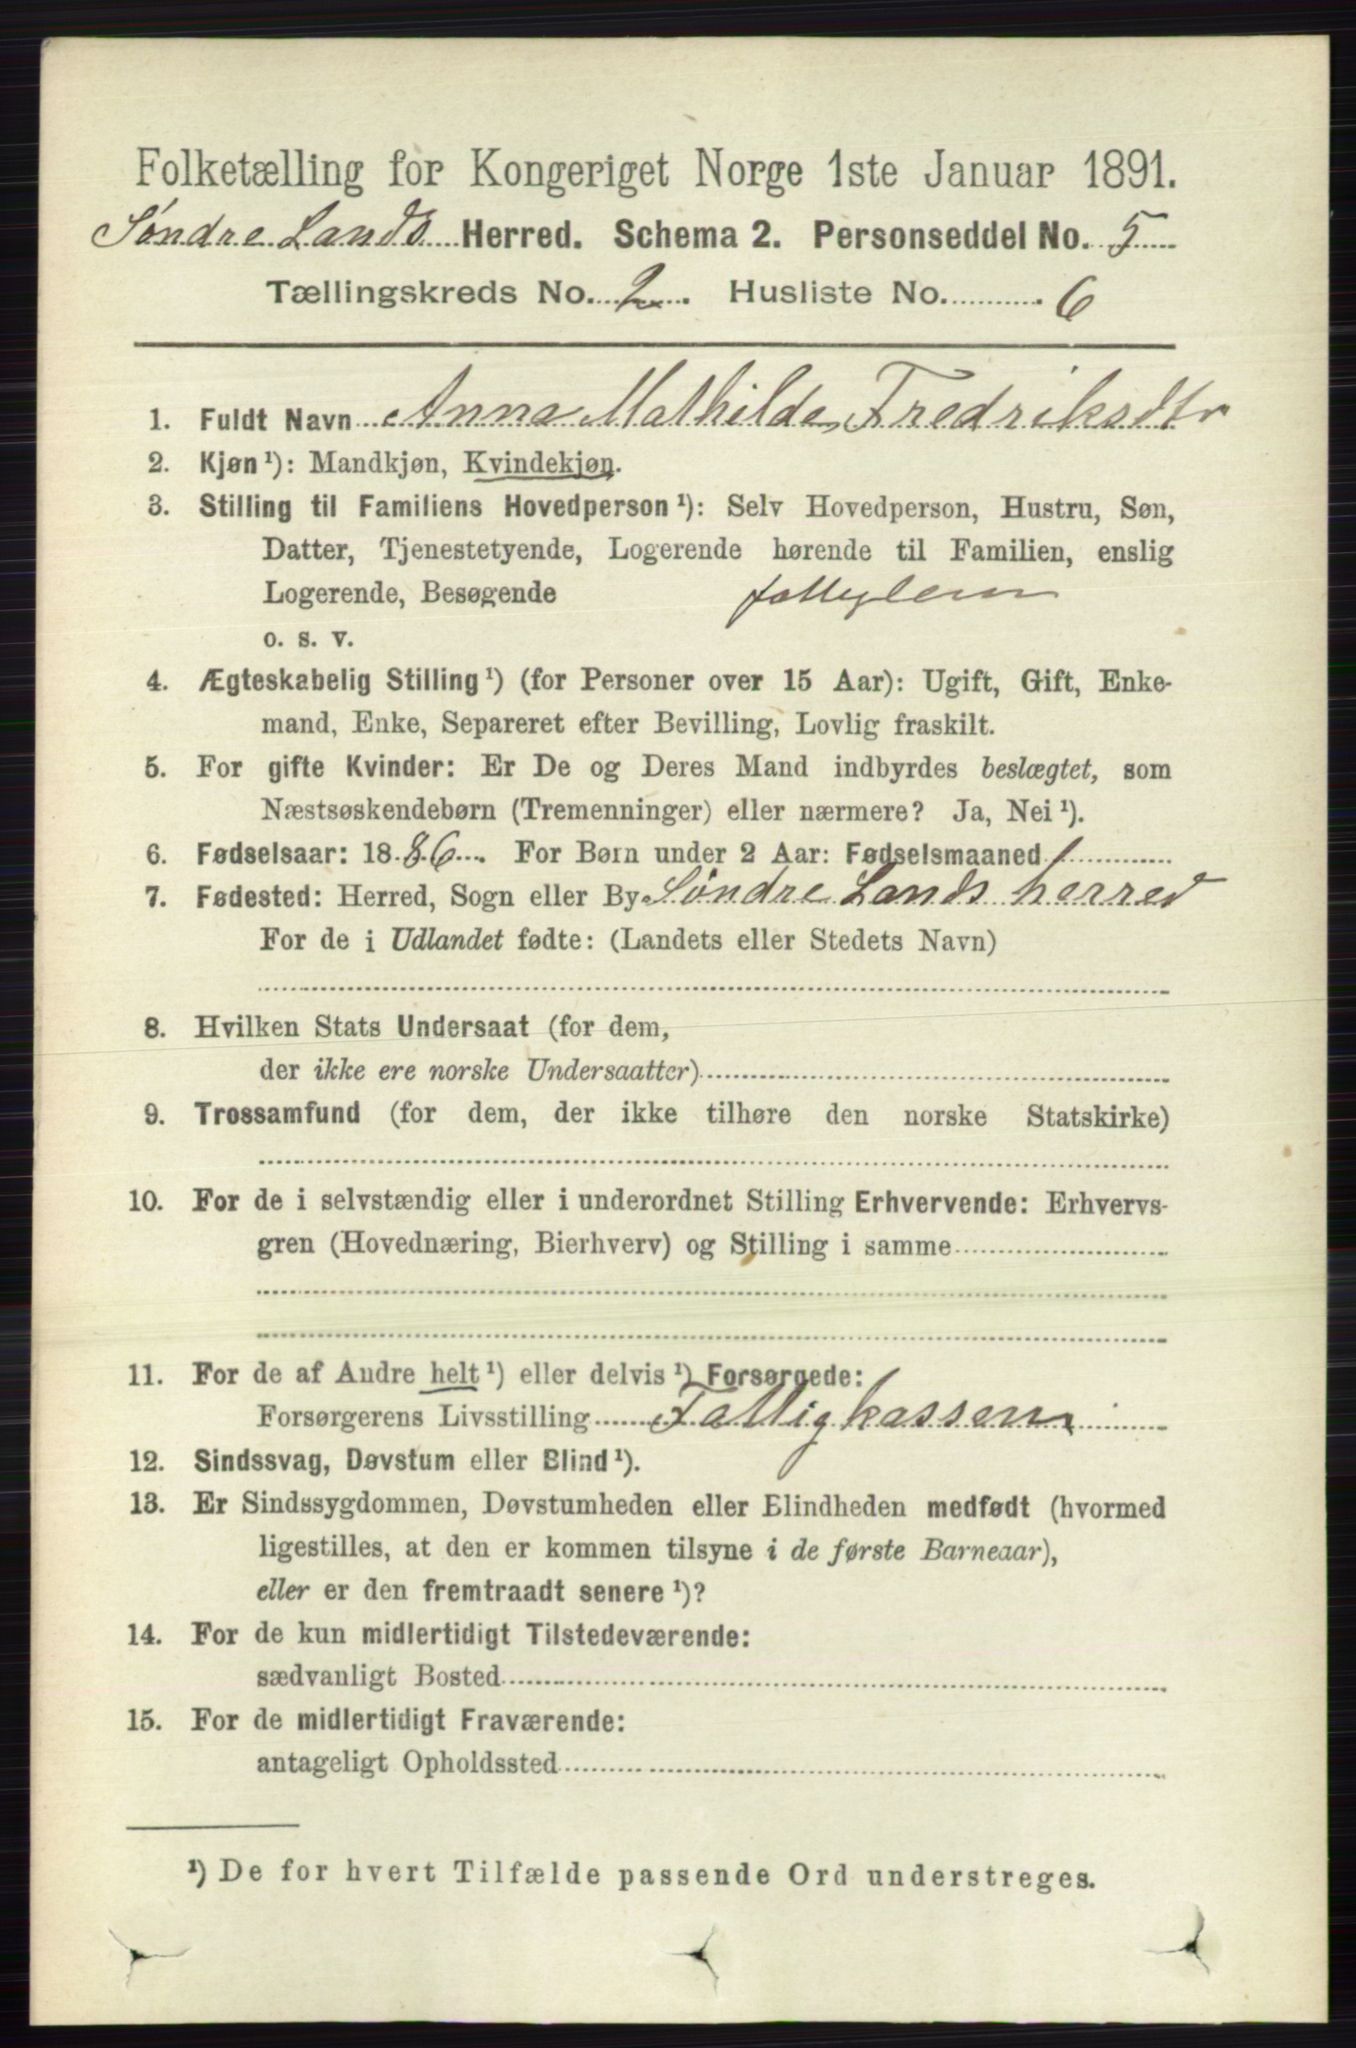 Folketælling for Kongeriget Norge 1ste Januar 1891.
Søndre Lands Herred. Schema 2. Personseddel No. 5
Tællingskreds No. 2. Husliste No. 6
1. Fuldt Navn Anna Mathilde Fredriksdtr
2. Kjøn ¹): Mandkjøn, Kvindekjøn.
3. Stilling til Familiens Hovedperson ¹): Selv Hovedperson, Hustru, Søn,
Datter, Tjenestetyende, Logerende hørende til Familien, enslig
Logerende, Besøgende fattiglem
o. s. v.
4. Ægteskabelig Stilling ¹) (for Personer over 15 Aar): Ugift, Gift, Enke-
mand, Enke, Separeret efter Bevilling, Lovlig fraskilt.
5. For gifte Kvinder: Er De og Deres Mand indbyrdes beslægtet, som
Næstsøskendebørn (Tremenninger) eller nærmere? Ja, Nei ¹).
6. Fødselsaar: 1886. For Børn under 2 Aar: Fødselsmaaned
7. Fødested: Herred, Sogn eller By Søndre Lands herred
For de i Udlandet fødte: (Landets eller Stedets Navn)
8. Hvilken Stats Undersaat (for dem,
der ikke ere norske Undersaatter)
9. Trossamfund (for dem, der ikke tilhøre den norske Statskirke)
10. For de i selvstændig eller i underordnet Stilling Erhvervende: Erhvervs-
gren (Hovednæring, Bierhverv) og Stilling i samme
11. For de af Andre helt ¹) eller delvis ¹) Forsørgede:
Forsørgerens Livsstilling Fattigkassen
12. Sindssvag, Døvstum eller Blind ¹).
13. Er Sindssygdommen, Døvstumheden eller Blindheden medfødt (hvormed
ligestilles, at den er kommen tilsyne i de første Barneaar),
eller er den fremtraadt senere ¹)?
14. For de kun midlertidigt Tilstedeværende:
sædvanligt Bosted
15. For de midlertidigt Fraværende:
antageligt Opholdssted
¹) De for hvert Tilfælde passende Ord understreges.